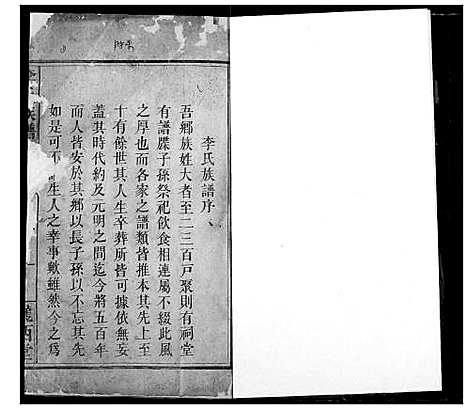 李氏族譜序
吾鄉族姓大者至二三百戶聚則有祠堂
有譜牒子孫祭祀飲食相連屬不綴此風
之厚也而各家之譜類皆推本其先上至
十有餘世其人生卒葬所皆可據依無妄
蓋其時代約及元明之間迄今將五百年
而人皆安於其鄉以長子孫以不忘其先
如是可不 生人之幸事歟雖然今之爲
族譜